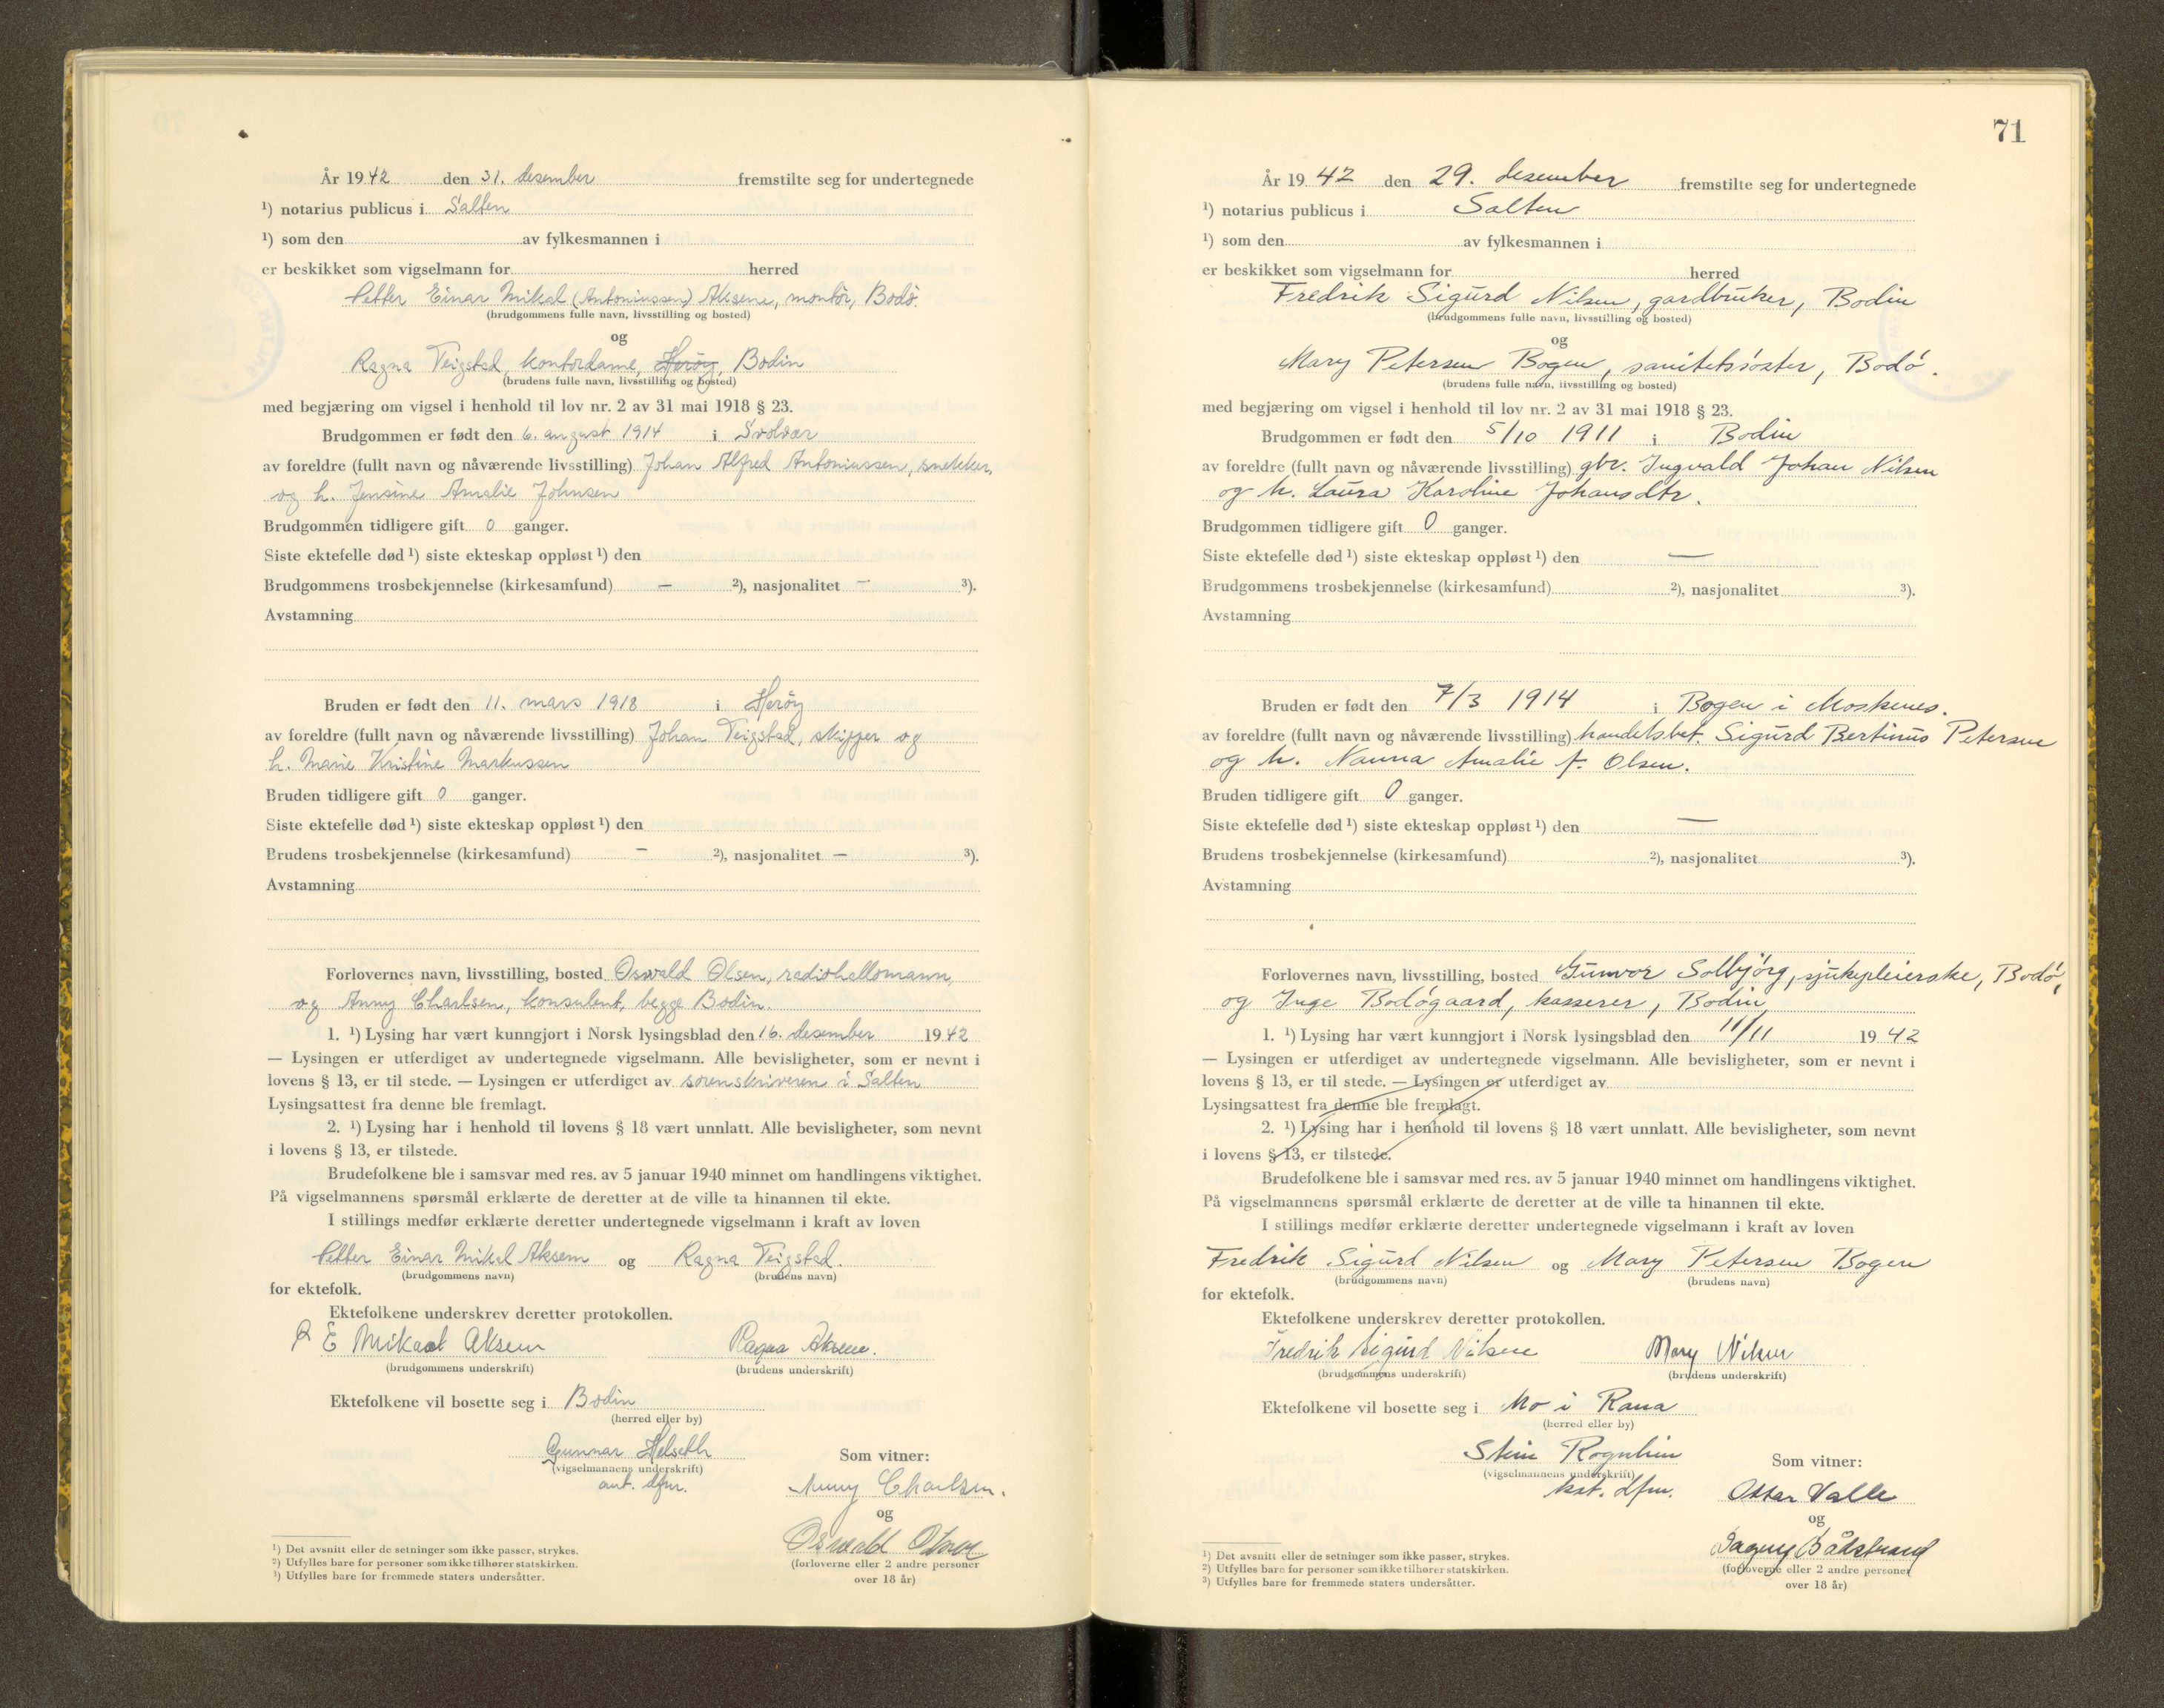 År 1942 den 31. desember fremstilte seg for undertegnede
¹) notarius publicus i Salten
¹) som den av fylkesmannen i
er beskikket som vigselmann for herred
Petter Einar Mikal (Antoniussen) Aksem, montør, Bodø
(brudgommens fulle navn, livsstilling og bosted)
og
Ragna Teigstad, kontordame, Herøy, Bodin
(brudens fulle navn, livsstilling og bosted)
med begjæring om vigsel i henhold til lov nr. 2 av 31 mai 1918 § 23.
Brudgommen er født den 6. august 1914 i Svolvær
av foreldre (fullt navn og nåværende livsstilling) Johan Alfred Antoniussen, snekker,
og h. Jensine Amalie Johnsen
Brudgommen tidligere gift 0 ganger.
Siste ektefelle død ¹) siste ekteskap oppløst ¹) den
Brudgommens trosbekjennelse (kirkesamfund) — ²), nasjonalitet — ³).
Avstamning
Bruden er født den 11. mars 1918 i Herøy
av foreldre (fullt navn og nåværende livsstilling) Johan Teigstad, skipper og
h. Marie Kristine Markussen
Bruden tidligere gift 0 ganger.
Siste ektefelle død ¹) siste ekteskap oppløst ¹) den
Brudens trosbekjennelse (kirkesamfund) — ²), nasjonalitet — ³).
Avstamning
Forlovernes navn, livsstilling, bosted Osvald Olsen, radiohallomann,
og Anny Charlsen, konsulent, begge Bodin.
1. ¹) Lysing har vært kunngjort i Norsk lysingsblad den 16. desember 1942
— Lysingen er utferdiget av undertegnede vigselmann. Alle bevisligheter, som er nevnt i
lovens § 13, er til stede. — Lysingen er utferdiget av sorenskriveren i Salten
Lysingsattest fra denne ble fremlagt.
2. ¹) Lysing har i henhold til lovens § 18 vært unnlatt. Alle bevisligheter, som nevnt
i lovens § 13, er tilstede.
Brudefolkene ble i samsvar med res. av 5 januar 1940 minnet om handlingens viktighet.
På vigselmannens spørsmål erklærte de deretter at de ville ta hinannen til ekte.
I stillings medfør erklærte deretter undertegnede vigselmann i kraft av loven
Petter Einar Mikal Aksem og Ragna Teigstad.
(brudgommens navn) (brudens navn)
for ektefolk.
Ektefolkene underskrev deretter protokollen.
P E Mikael Aksem Ragna Aksem.
(brudgommens underskrift) (brudens underskrift)
Ektefolkene vil bosette seg i Bodin
(herred eller by)
Gunnar Helseth Som vitner:
(vigselmannens underskrift)
aut. dfm. Anny Charlsen.
og
Osvald Olsen
(forloverne eller 2 andre personer
over 18 år)
¹) Det avsnitt eller de setninger som ikke passer, strykes.
²) Utfylles bare for personer som ikke tilhører statskirken.
³) Utfylles bare for fremmede staters undersåtter.
71
År 1942 den 29. desember fremstilte seg for undertegnede
¹) notarius publicus i Salten
¹) som den av fylkesmannen i
er beskikket som vigselmann for herred
Fredrik Sigurd Nilsen, gardbruker, Bodin
(brudgommens fulle navn, livsstilling og bosted)
og
Mary Petersen Bogen, sanitetssøster, Bodø.
(brudens fulle navn, livsstilling og bosted)
med begjæring om vigsel i henhold til lov nr. 2 av 31 mai 1918 § 23.
Brudgommen er født den 5/10 1911 i Bodin
av foreldre (fullt navn og nåværende livsstilling) gbr. Ingvald Johan Nilsen
og h. Laura Karoline Johansdtr.
Brudgommen tidligere gift 0 ganger.
Siste ektefelle død ¹) siste ekteskap oppløst ¹) den —
Brudgommens trosbekjennelse (kirkesamfund) ²), nasjonalitet ³).
Avstamning
Bruden er født den 7/3 1914 i Bogen i Moskenes.
av foreldre (fullt navn og nåværende livsstilling) handelsbet. Sigurd Bertinus Petersen
og h. Nanna Amalie f. Olsen.
Bruden tidligere gift 0 ganger.
Siste ektefelle død ¹) siste ekteskap oppløst ¹) den —
Brudens trosbekjennelse (kirkesamfund) ²), nasjonalitet ³).
Avstamning
Forlovernes navn, livsstilling, bosted Gunvor Solbjørg, sjukepleierske, Bodø,
og Inge Bodøgaard, kasserer, Bodin
1. ¹) Lysing har vært kunngjort i Norsk lysingsblad den 11/11 1942
— Lysingen er utferdiget av undertegnede vigselmann. Alle bevisligheter, som er nevnt i
lovens § 13, er til stede. — Lysingen er utferdiget av
Lysingsattest fra denne ble fremlagt.
2. ¹) Lysing har i henhold til lovens § 18 vært unnlatt. Alle bevisligheter, som nevnt
i lovens § 13, er tilstede.
Brudefolkene ble i samsvar med res. av 5 januar 1940 minnet om handlingens viktighet.
På vigselmannens spørsmål erklærte de deretter at de ville ta hinannen til ekte.
I stillings medfør erklærte deretter undertegnede vigselmann i kraft av loven
Fredrik Sigurd Nilsen og Mary Petersen Bogen
(brudgommens navn) (brudens navn)
for ektefolk.
Ektefolkene underskrev deretter protokollen.
Fredrik Sigurd Nilsen Mary Nilsen
(brudgommens underskrift) (brudens underskrift)
Ektefolkene vil bosette seg i Mo i Rana
(herred eller by)
Stein Rognlien Som vitner:
(vigselmannens underskrift)
kst. dfm. Ottar Valle
og
Dagny Bådstrand
(forloverne eller 2 andre personer
over 18 år)
¹) Det avsnitt eller de setninger som ikke passer, strykes.
²) Utfylles bare for personer som ikke tilhører statskirken.
³) Utfylles bare for fremmede staters undersåtter.